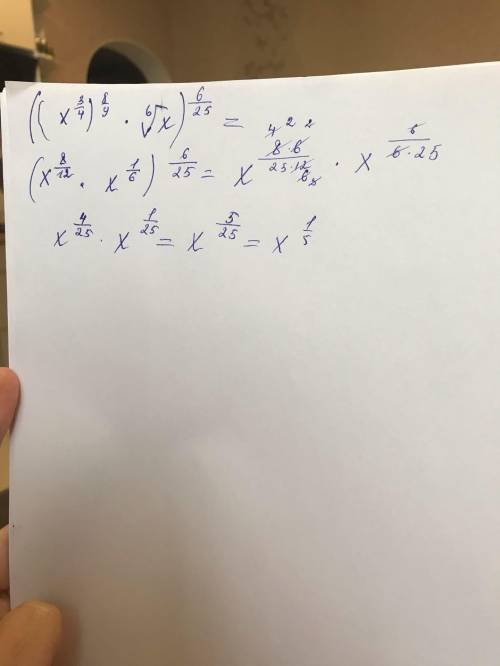 ((x^{3/4})^{8/9} · ⁶√x)^{6/25} =
(x^{8/12} · x^{1/6})^{6/25} = x^{8·6/25·12} · x^{6/6·25}
x^{4/25} · x^{1/25} = x^{5/25} = x^{1/5}